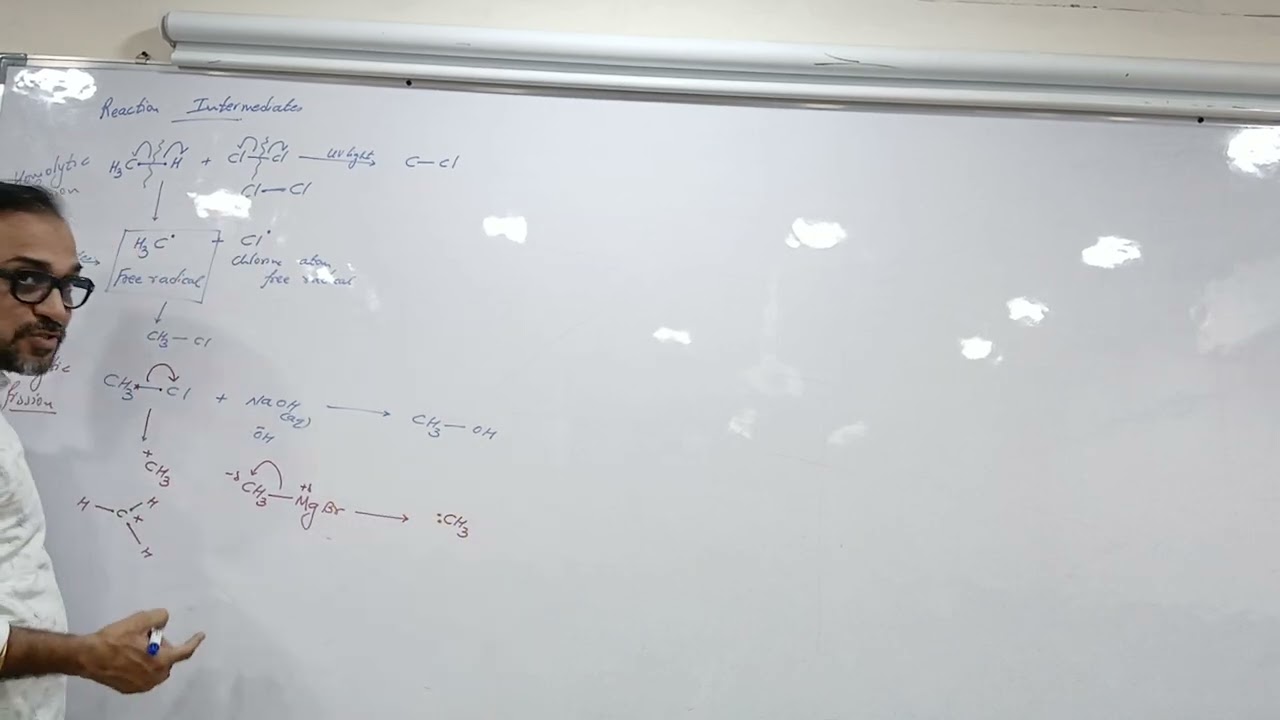 Reaction Intermediates
Homolytic
H₃C—H + Cl—Cl —UV light→ C—Cl
Cl—Cl
H₃C• + Cl•
Free radical
chlorine atom
free radical
CH₃—Cl
CH₃—Cl + NaOH (aq) → CH₃—OH
fission
ŌH
+
CH₃
-δ CH₃—MgBr +δ → :CH₃
H—C+
H
H